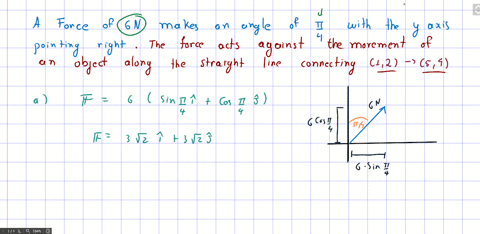 A Force of 6N makes an angle of π/4 with the y axis
pointing right. The force acts against the movement of
an object along the straight line connecting (1,2) → (5,4)
a) F = 6 ( sin π/4 î + Cos π/4 ĵ )
F = 3√2 î + 3√2 ĵ
6N
6 Cos π/4
π/4
6·Sin π/4